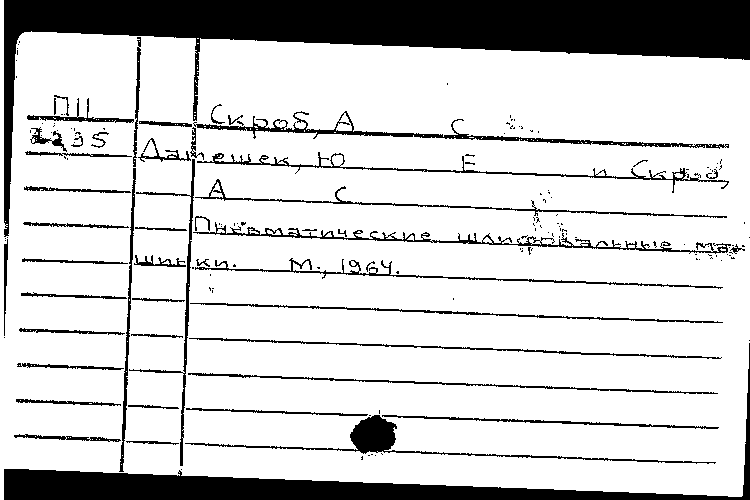 П11
Скроб, А С
2235
Датешек, Ю Е и Скроб,
А С
Пневматические шлифовальные ма-
шинки. М., 1964.